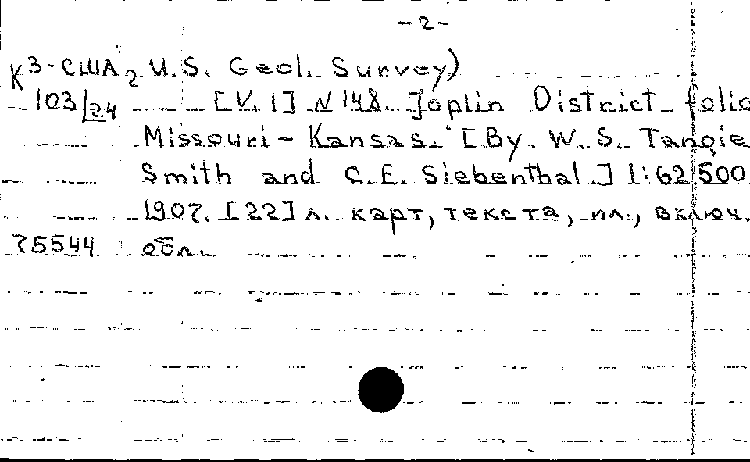 -2-
К3-США2 U.S. Geol. Survey)
103/24 [V. 1] N 148. Joplin District folio
Missouri-Kansas. [By W. S. Tangie
Smith and C. E. Siebenthal.] 1:62 500
1907. [22] л. карт, текста, ил., включ.
75544 обл.